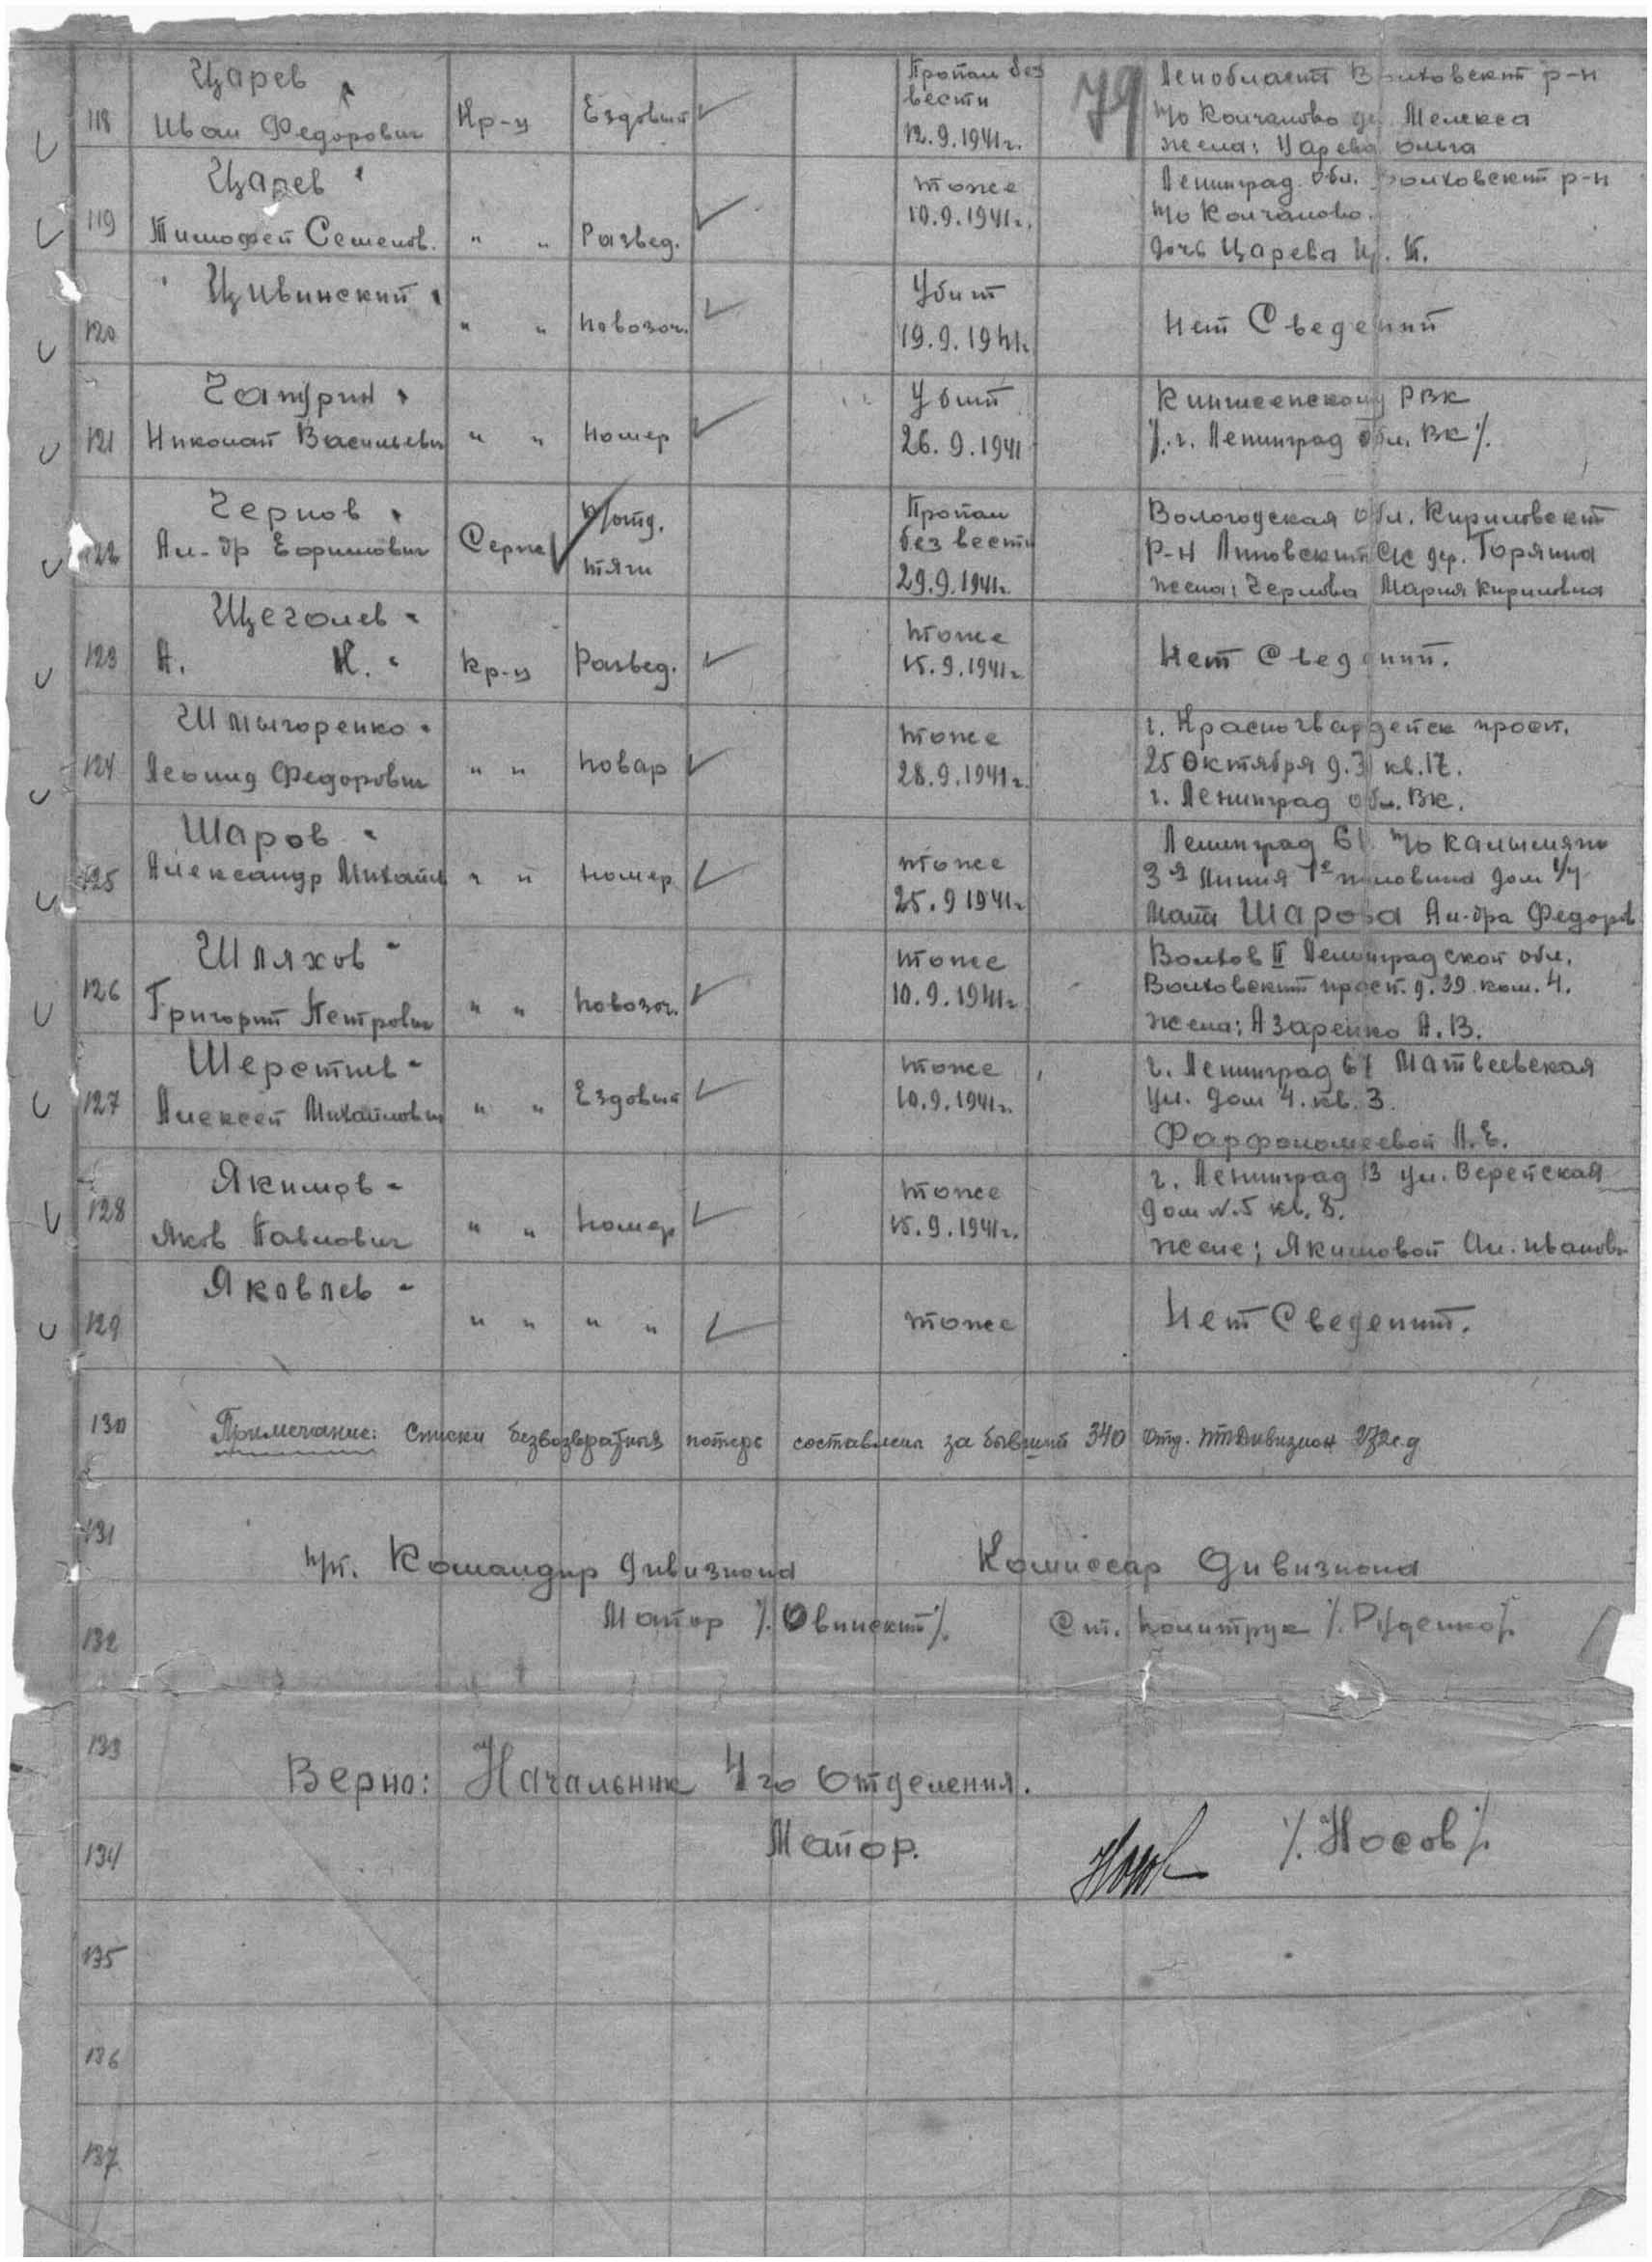 79
118
Царев
Иван Федорович
Кр-ц
Ездовый
Пропал без
вести
12.9.1941г.
Ленобласть Волховский р-н
п/о Колчаново д. Мелекса
жена: Царева Ольга
119
Царев
Тимофей Семенов.
" "
Развед.
тоже
10.9.1941г.
Ленинград. обл. Волховский р-н
п/о Колчаново.
дочь Царева
120
Цивинский
" "
повозоч.
Убит
19.9.1941г.
Нет Сведений
121
Николай Васильевич
" "
номер
Убит
26.9.1941
Кингисепскому РВК
г. Ленинград обл. ВК
122
Чернов
Ал-др Ефимович
Серж
тяги
Пропал
без вести
29.9.1941г.
Вологодская обл. Кириловский
р-н Липовский С/С дер. Горяина
жена: Чернова Мария Кириловна
123
Щеголев
А. Н.
Кр-ц
Развед.
тоже
15.9.1941г.
Нет Сведений.
124
Шлыгоренко
Леонид Федорович
" "
повар
тоже
28.9.1941г.
г. Красногвардейск просп.
25 Октября д.31 кв.17.
г. Ленинград обл. ВК.
125
Шаров
Александр Михайл
" "
номер
тоже
25.9 1941г.
Ленинград 61. п/о
3я Линия 1е половина дом 1/4
Мать Шарова Ал-дра Федоров
126
Шляхов
Григорий Петрович
" "
повозоч.
тоже
10.9.1941г.
Волхов II Ленинградской обл.
Волховский просп. д.39 ком. 4.
жена: Азаренко А.В.
127
Шерстнев
Алексей Михайлович
" "
Ездовый
тоже
10.9.1941г.
г. Ленинград 61 Матвеевская
ул. дом 4. кв. 3.
Фарфоломеевой
128
Якимов
Яков Павлович
" "
номер
тоже
15.9.1941г.
г. Ленинград 13 ул. Верейская
дом №5 кв. 8.
жене; Якимовой Ан. Ивановн
129
Яковлев
" "
" "
тоже
Нет Сведений.
130
Примечание: Списки безвозвратных потерь составлены за бывший 340 отд. птдивизион 272с.д
131
Командир дивизиона
Комиссар Дивизиона
132
Майор /Овинский/.
Ст. политрук /Руденко/.
133
Верно: Начальник 4го Отделения.
134
Майор.
/Носов/
135
136
137